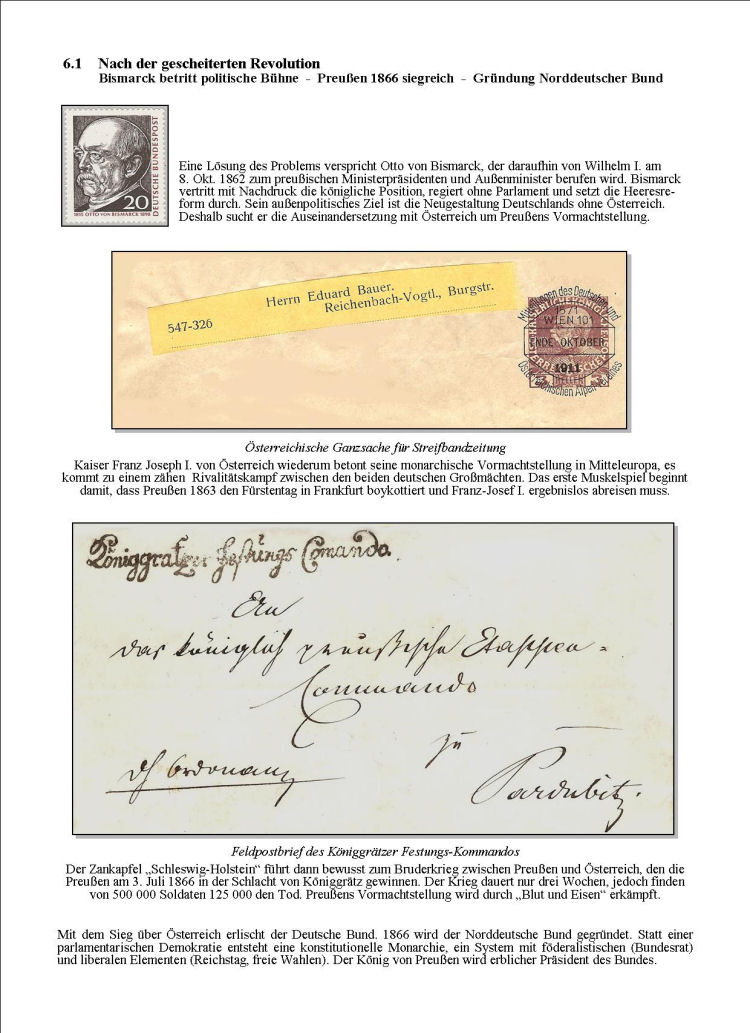 6.1 Nach der gescheiterten Revolution
Bismarck betritt politische Bühne - Preußen 1866 siegreich - Gründung Norddeutscher Bund
DEUTSCHE BUNDESPOST
20
1815 OTTO VON BISMARCK 1898
Eine Lösung des Problems verspricht Otto von Bismarck, der daraufhin von Wilhelm I. am
8. Okt. 1862 zum preußischen Ministerpräsidenten und Außenminister berufen wird. Bismarck
vertritt mit Nachdruck die königliche Position, regiert ohne Parlament und setzt die Heeresre-
form durch. Sein außenpolitisches Ziel ist die Neugestaltung Deutschlands ohne Österreich.
Deshalb sucht er die Auseinandersetzung mit Österreich um Preußens Vormachtstellung.
Herrn Eduard Bauer.
Reichenbach-Vogtl., Burgstr.
547-326
Mitteilungen des Deutschen und
WIEN 101
ENDE OKTOBER
1911
HELLER
Österreichischen Alpenvereines
Österreichische Ganzsache für Streifbandzeitung
Kaiser Franz Joseph I. von Österreich wiederum betont seine monarchische Vormachtstellung in Mitteleuropa, es
kommt zu einem zähen Rivalitätskampf zwischen den beiden deutschen Großmächten. Das erste Muskelspiel beginnt
damit, dass Preußen 1863 den Fürstentag in Frankfurt boykottiert und Franz-Josef I. ergebnislos abreisen muss.
Königgratzer Festungs Comando.
An
das königlich preußische Etappen-
Commando
zu
Pardubitz.
Feldpostbrief des Königgrätzer Festungs-Kommandos
Der Zankapfel „Schleswig-Holstein“ führt dann bewusst zum Bruderkrieg zwischen Preußen und Österreich, den die
Preußen am 3. Juli 1866 in der Schlacht von Königgrätz gewinnen. Der Krieg dauert nur drei Wochen, jedoch finden
von 500 000 Soldaten 125 000 den Tod. Preußens Vormachtstellung wird durch „Blut und Eisen“ erkämpft.
Mit dem Sieg über Österreich erlischt der Deutsche Bund. 1866 wird der Norddeutsche Bund gegründet. Statt einer
parlamentarischen Demokratie entsteht eine konstitutionelle Monarchie, ein System mit föderalistischen (Bundesrat)
und liberalen Elementen (Reichstag, freie Wahlen). Der König von Preußen wird erblicher Präsident des Bundes.